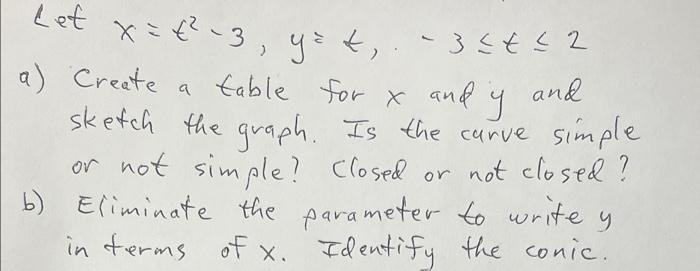 Let x = t² - 3, y = t, . - 3 ≤ t ≤ 2
a) Create a table for x and y and
sketch the graph. Is the curve simple
or not simple? Closed or not closed?
b) Eliminate the parameter to write y
in terms of x. Identify the conic.